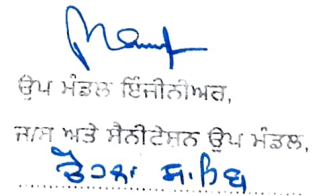 ਉਪ ਮੰਡਲ ਇੰਜੀਨੀਅਰ,
ਜ/ਸ ਅਤੇ ਸੈਨੀਟੇਸ਼ਨ ਉਪ ਮੰਡਲ,
ਸਾਹਿਬ